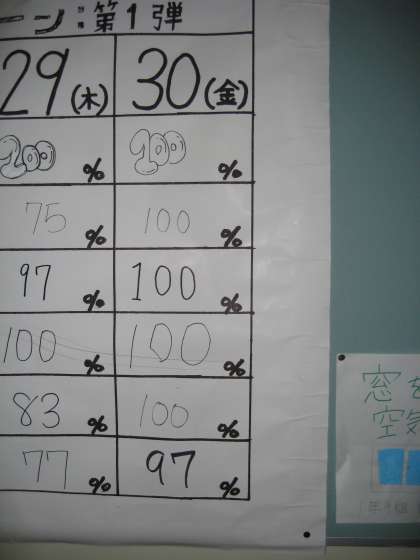 ーン：第1弾
29(木) 30(金)
100% 100%
75% 100%
97% 100%
100% 100%
83% 100%
77% 97%
窓を
空気
1年4組